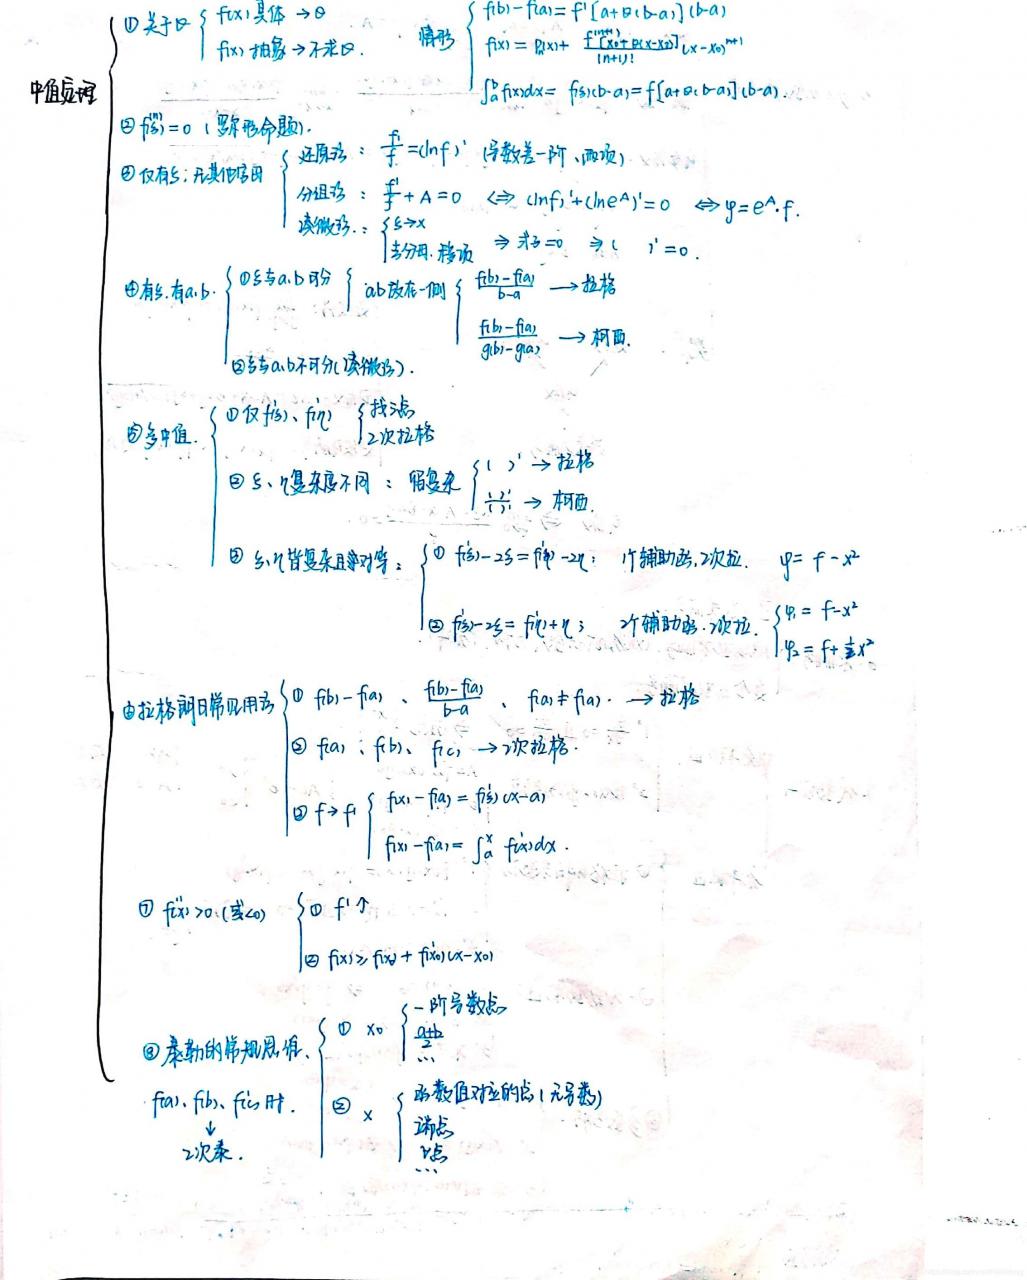 中值定理
① 关于θ { f(x)具体 → θ
f(x)抽象 → 不求θ.
情形 { f(b)-f(a)=f'[a+θ(b-a)](b-a)
f(x)=P(x)+ f^(n+1)[x0+θ(x-x0)]/(n+1)! (x-x0)^(n+1)
∫_a^b f(x)dx = f(ξ)(b-a)=f[a+θ(b-a)](b-a).
② f^(n)(ξ)=0 (罗尔命题).
③ 仅有ξ,无其他字母 { 还原法: f'/f=(lnf)' (导数差一阶、两项)
分组法: f'/f + A=0 ⇔ (lnf)'+(lne^A)'=0 ⇔ φ=e^A·f.
凑微法: { ξ→x
去分母.移项 ⇒ 式子=0 ⇒ ( )'=0.
④ 有ξ.有a,b. { ①ξ与a,b可分 { a,b放在一侧 { f(b)-f(a)/b-a → 拉格
f(b)-f(a)/g(b)-g(a) → 柯西.
②ξ与a,b不可分(凑微法).
⑤ 多中值. { ① 仅f'(ξ)、f'(η) { 找三点
2次拉格
② ξ、η复杂度不同: 留复杂 { ( )' → 拉格
( )'/( )' → 柯西.
③ ξ,η皆复杂且对等: { ① f'(ξ)-2ξ=f'(η)-2η: 1个辅助函.2次拉. φ=f-x²
② f'(ξ)-2ξ=f'(η)+η; 2个辅助函.2次拉. { φ1=f-x²
φ2=f+½x²
⑥ 拉格朗日常见用法 { ① f(b)-f(a)、f(b)-f(a)/b-a、f(a)≠f(a). → 拉格
② f(a)、f(b)、f(c) → 2次拉格.
③ f→f' { f(x)-f(a)=f'(ξ)(x-a)
f(x)-f(a)=∫_a^x f'(x)dx.
⑦ f''(x)>0.(或<0) { ① f'↑
② f(x)≥f(x0)+f'(x0)(x-x0)
⑧ 泰勒的常规思维. { ① x0 { 一阶导数点
a+b/2
...
f(a)、f(b)、f'(c)时.
↓
2次泰.
② x { 函数值对应的点(无导数)
端点
点
...